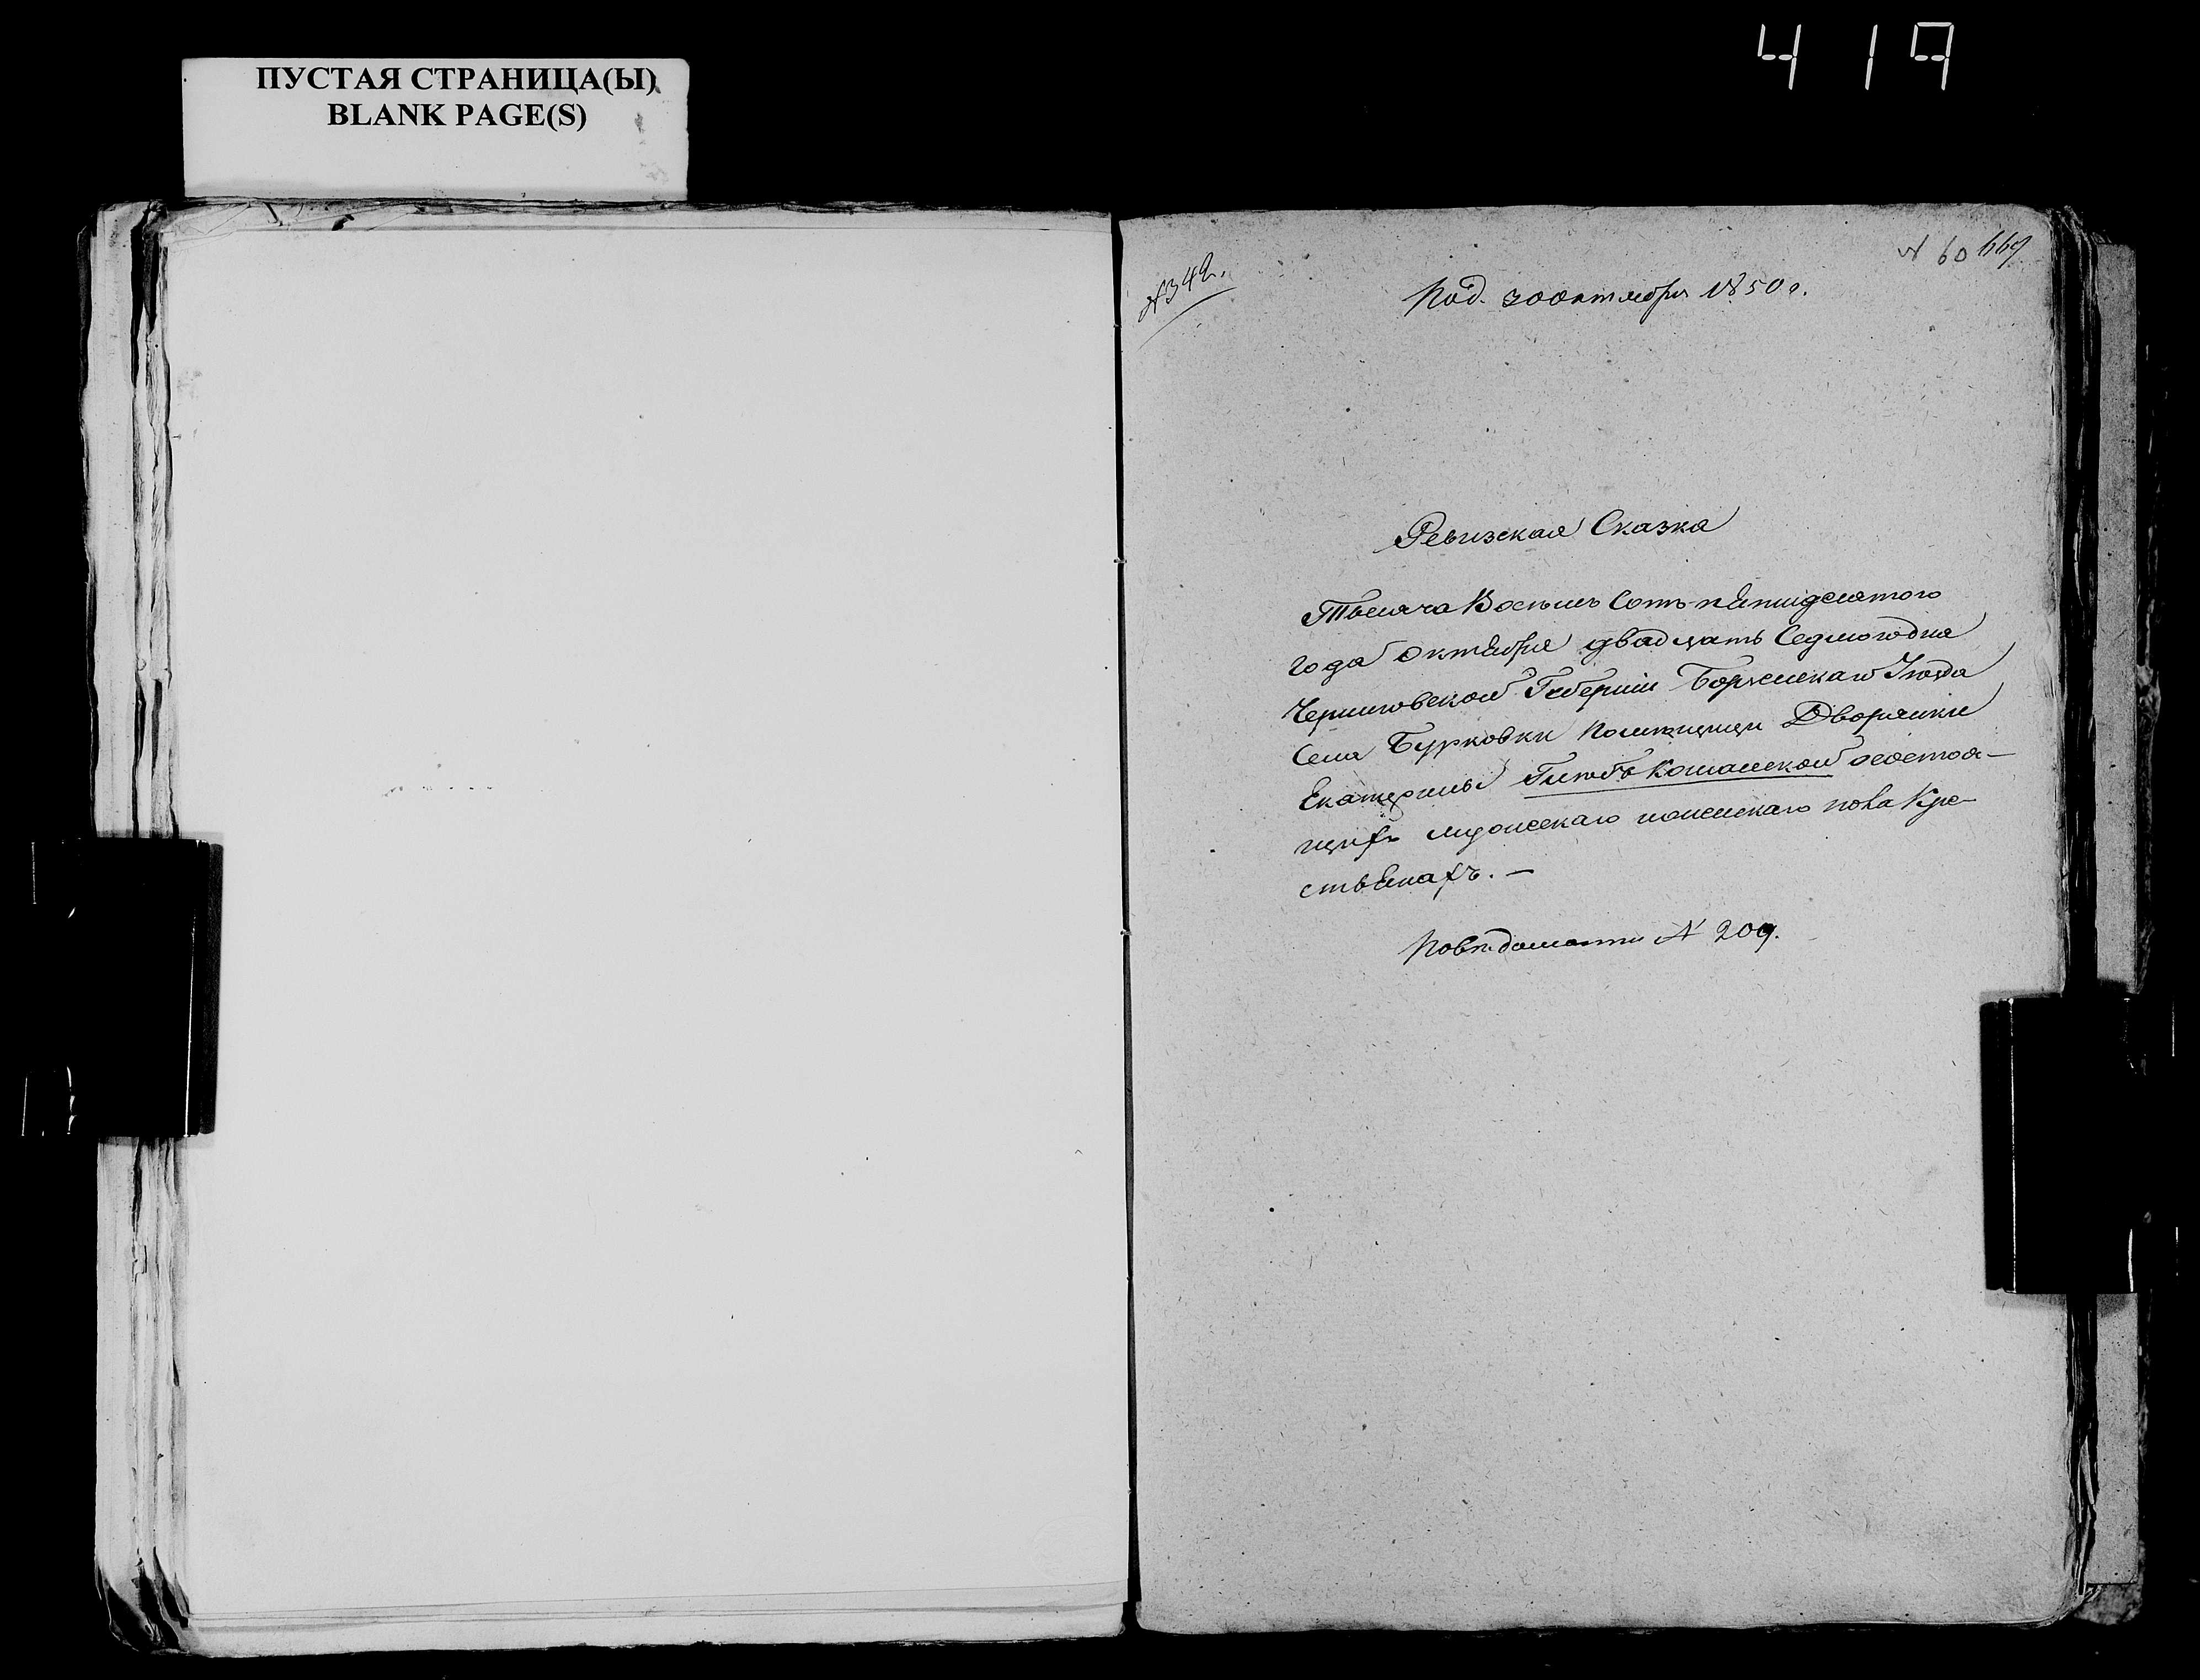 ПУСТАЯ СТРАНИЦА(Ы)
BLANK PAGE(S)
419
№ 342.
№ 60 669
Под. 30 октября 1850 г.
Ревизская Сказка
Тысяча Восемь Сотъ пѣтидесятого
года октѣбря двадцать Седмого дня
Черниговской Губернии Борзенскаго Уезда
Села Бурковки Помещицы Дворянки
Екатерины состоя-
щихъ мужескаго и женскаго пола Кре-
стьѣнахъ. —
По ведомости № 209.